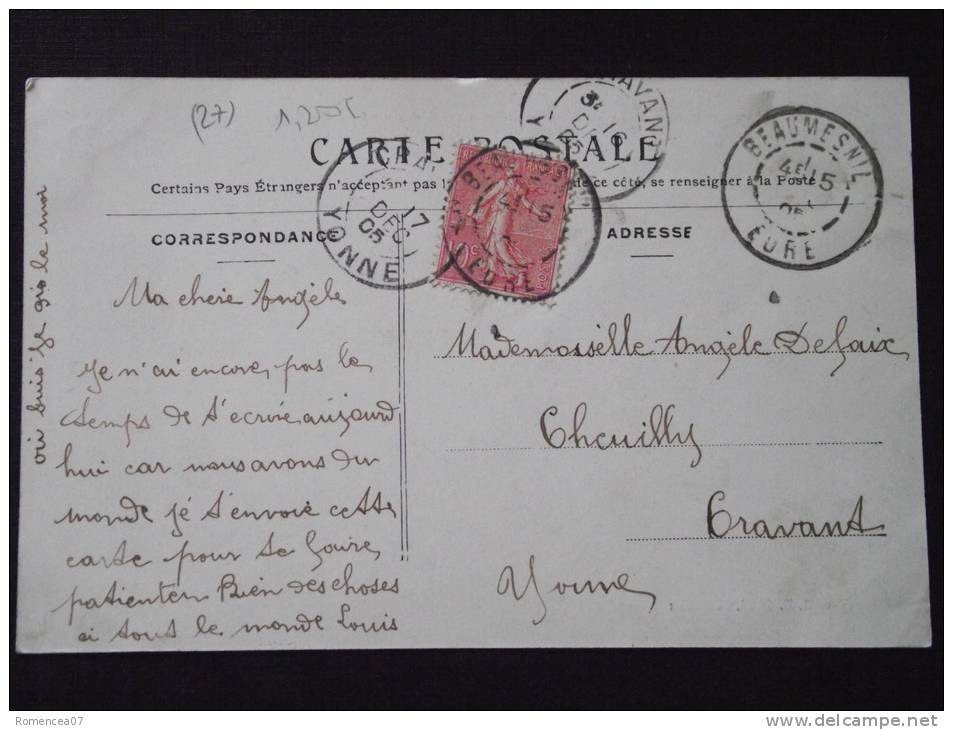 (27)
CARTE POSTALE
Certains Pays Étrangers n'acceptant pas de ce côté, se renseigner à la Poste
CORRESPONDANCE
ADRESSE
BEAUMESNIL
15
05
EURE
16
DEC
05
17
DEC
05
YONNE
10c
EURE
Ma chere Angèle
Je n'ai encore, pas le
temps de t'ecrire aujourd
hui car nous avons du
monde je t'envoie cette
carte pour te faire,
patienter Bien des choses
a tous le monde Louis
Mademoiselle Angèle Defaix
Cheuilly
Cravant
Yonne
Romencea07
delcampe.net